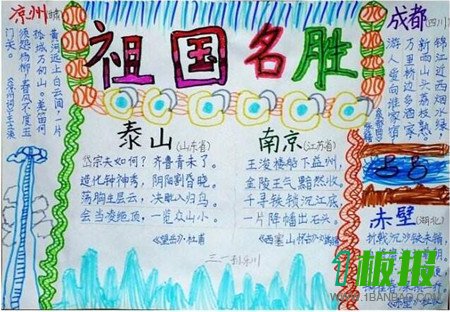 祖国名胜
凉州
黄河远上白云间,一片
孤城万仞山。羌笛何
须怨杨柳,春风不度玉
门关。
泰山(山东省)
岱宗夫如何?齐鲁青未了。
造化钟神秀,阴阳割昏晓。
荡胸生层云,决眦入归鸟。
会当凌绝顶,一览众山小。
《望岳》·杜甫
南京(江苏省)
王浚楼船下益州,
金陵王气黯然收。
千寻铁锁沉江底,
一片降幡出石头。
《西塞山怀古》
成都(四川)
锦江近西烟水绿,
新雨山头荔枝熟。
万里桥边多酒家,
游人爱向谁家宿
赤壁(湖北)
折戟沉沙铁未销,
板报
WWW.1BANBAO.COM